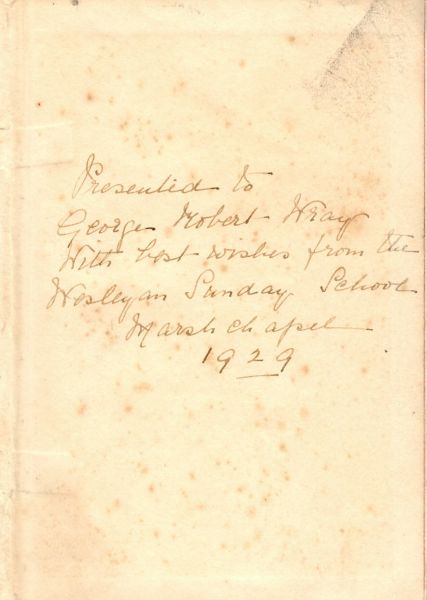 Presented to
George Robert Wray
With best wishes from the
Wesleyan Sunday School
Marsh chapel
1929